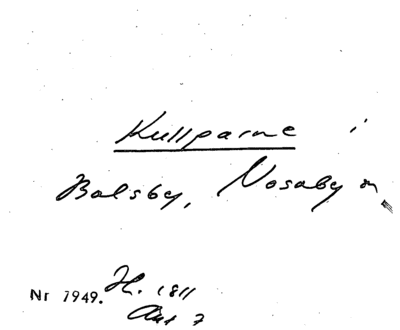 Kullparne i
Balsby, Nosaby sn
Nr 7949. H. 1811
Akt 7